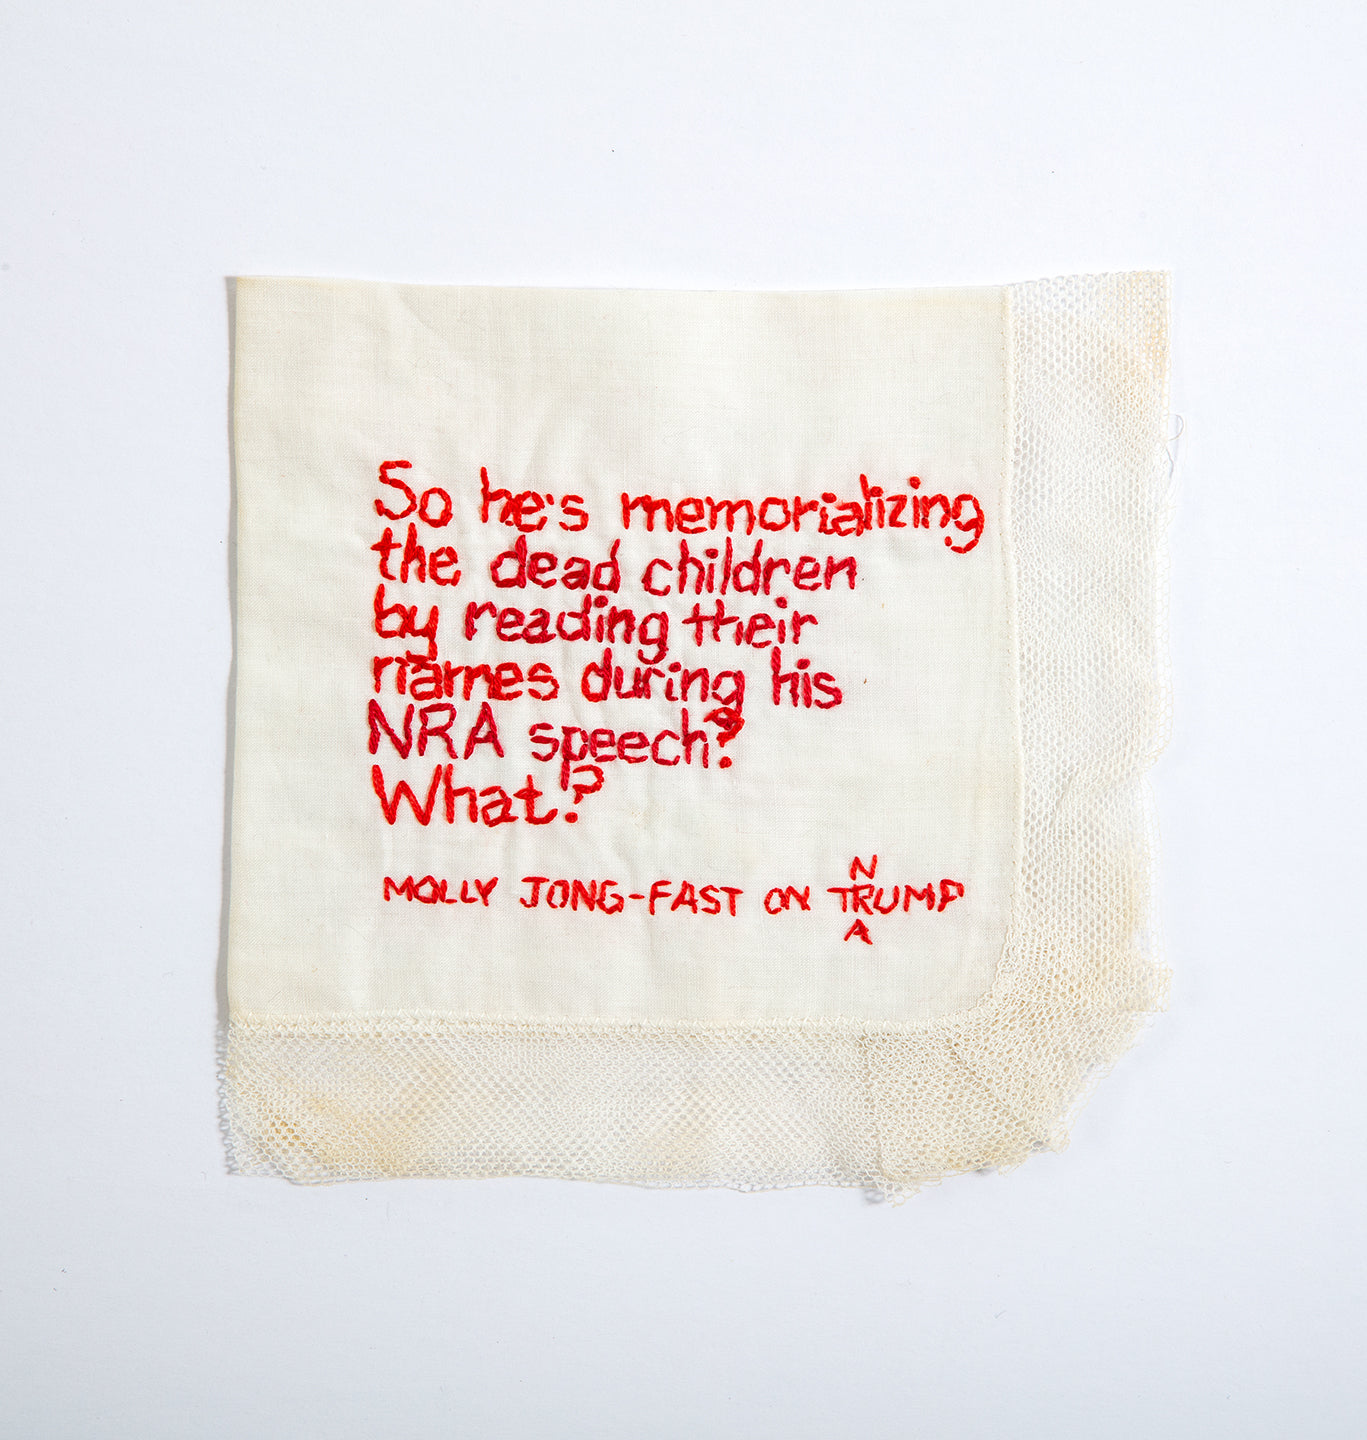 So he's memorializing
the dead children
by reading their
names during his
NRA speech?
What?
N
MOLLY JONG-FAST ON TRUMP
A